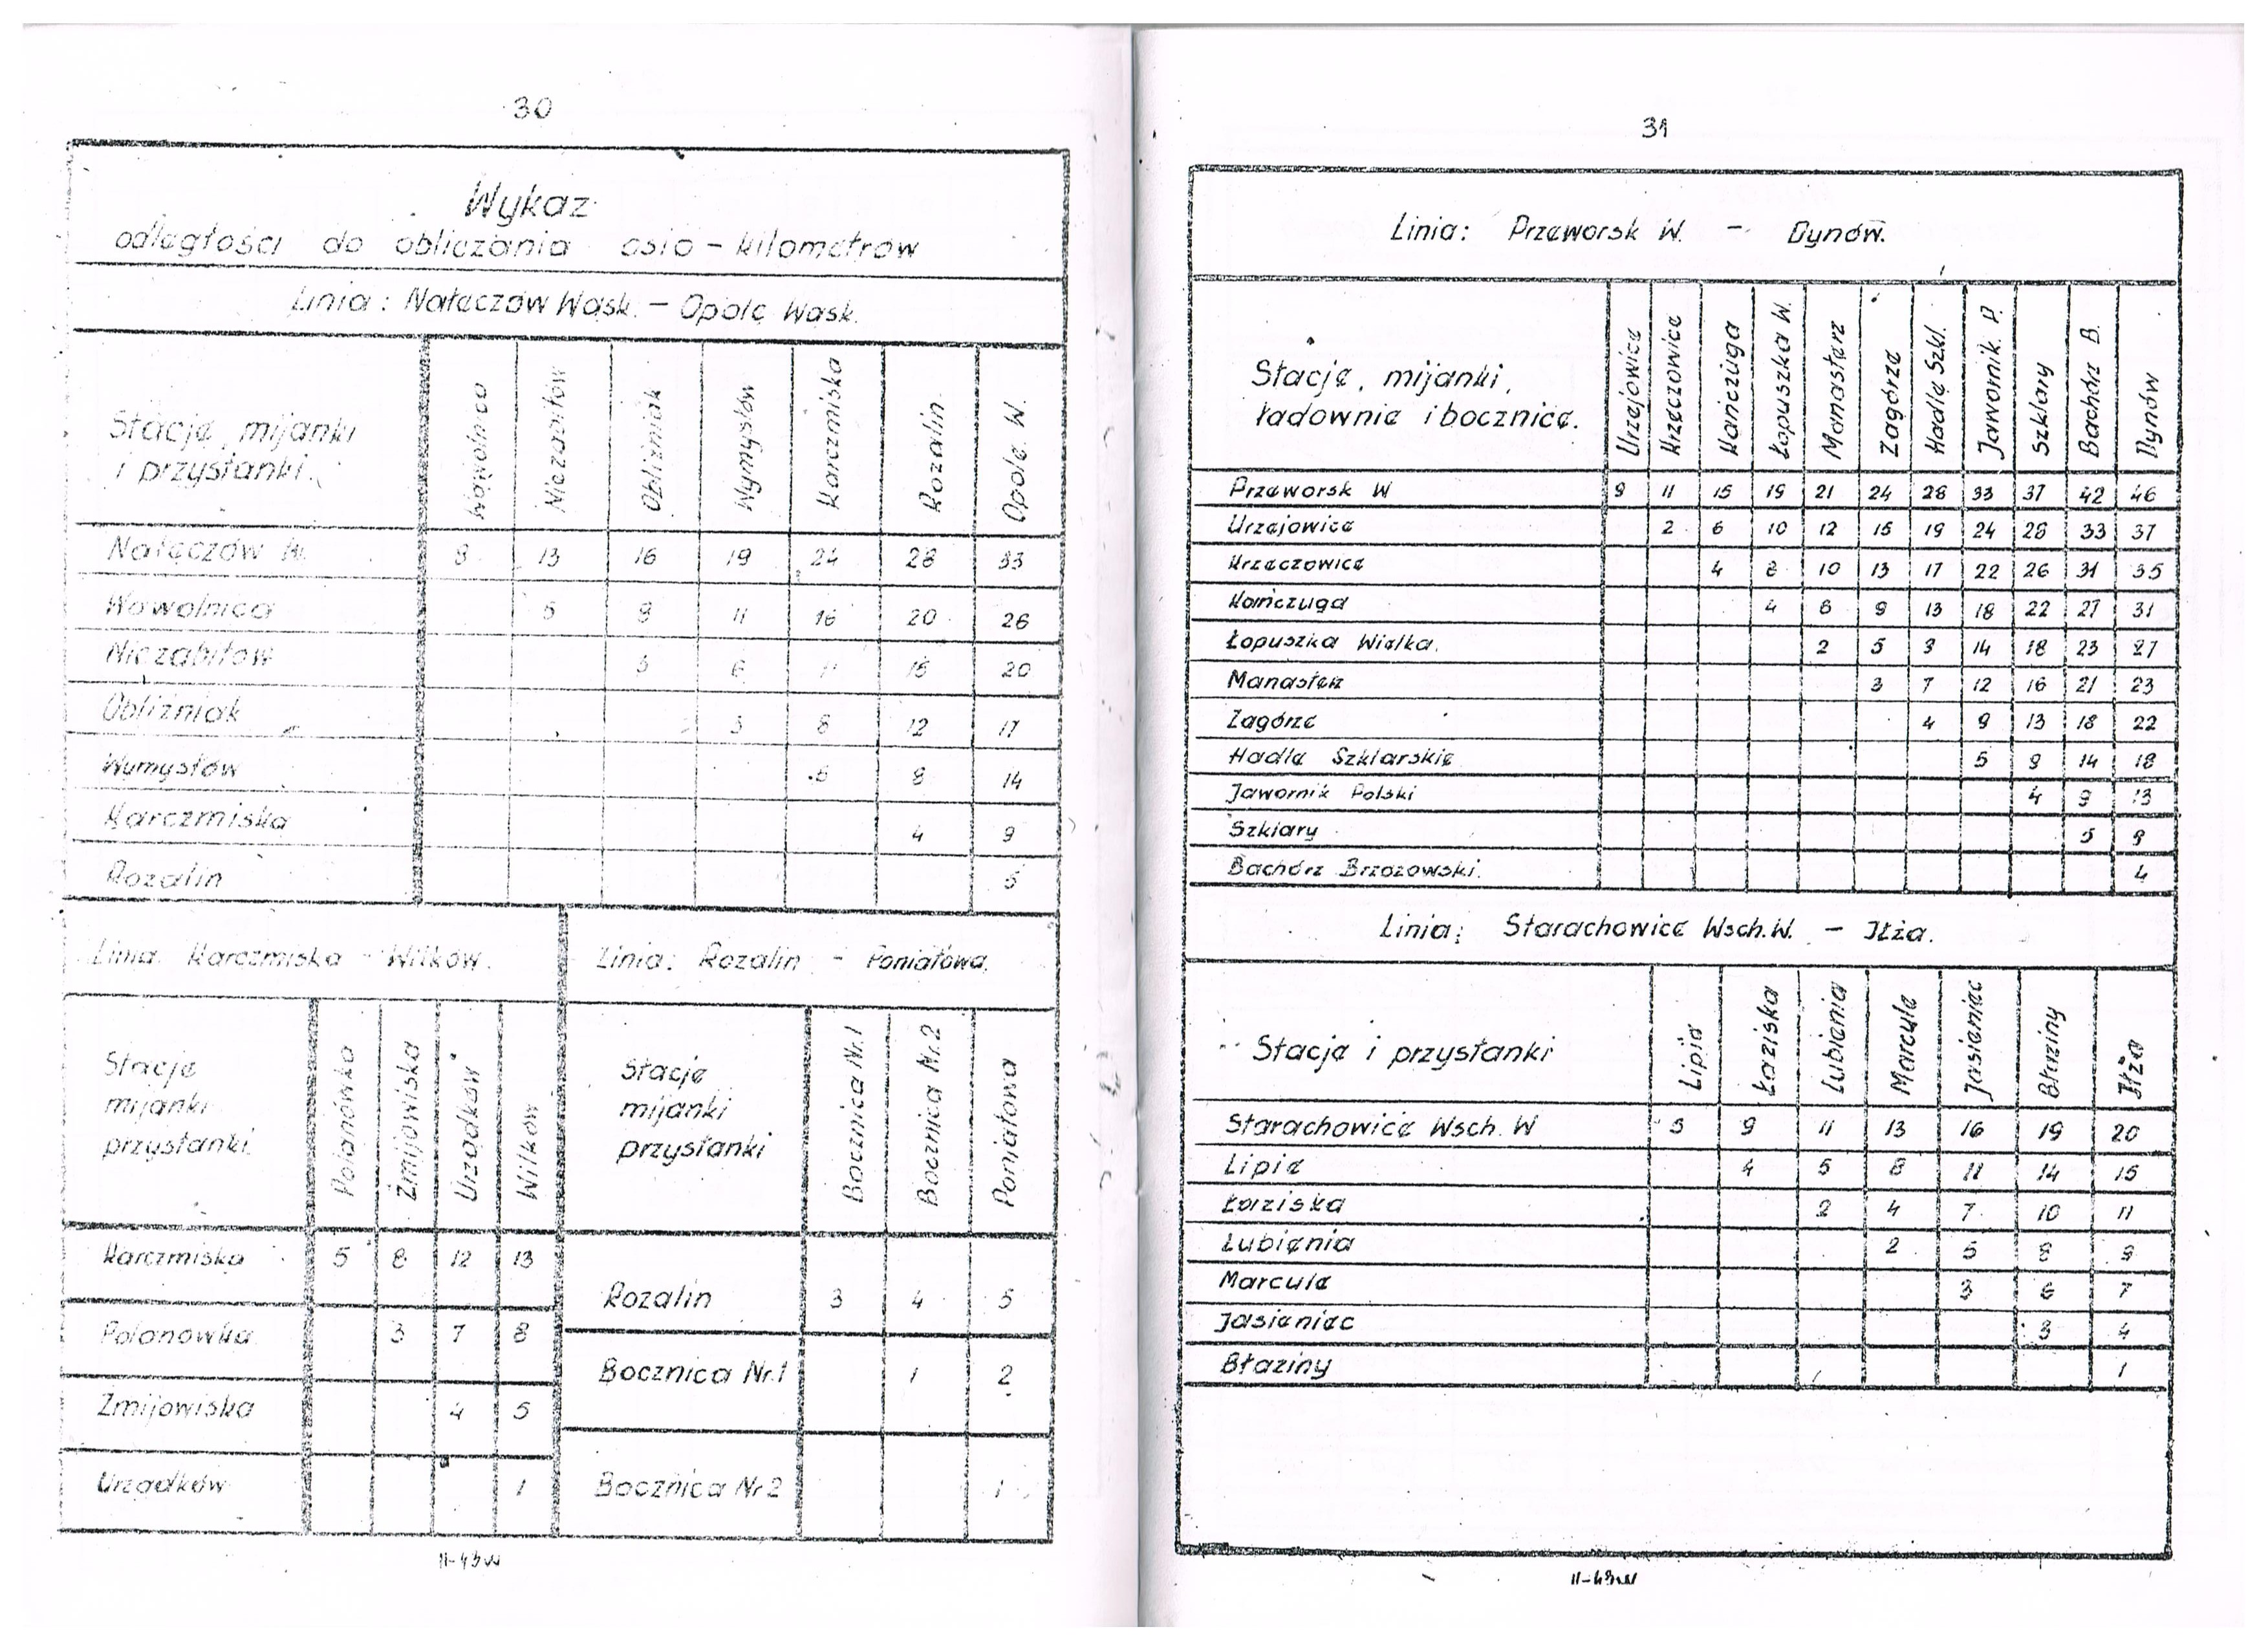 30
Wykaz
odległości do obliczania osio - kilometrów
Linia: Nałęczów Wąsk. - Opole Wąsk.
Stacje, mijanki
i przystanki.
Wąwolnica
Niezabitów
Obliźniak
Wymysłów
Karczmiska
Rozalin
Opole W.
Nałęczów W. 8 13 16 19 24 28 33
Wąwolnica 5 9 11 16 20 26
Niezabitów 3 6 11 15 20
Obliźniak 3 8 12 17
Wymysłów 5 8 14
Karczmiska 4 9
Rozalin 5
Linia: Karczmiska - Wilków.
Stacje
mijanki
przystanki.
Polanówka
Żmijowiska
Urządków
Wilków
Karczmiska 5 8 12 13
Polanówka 3 7 8
Żmijowiska 4 5
Urządków 1
Linia: Rozalin - Poniatowa.
Stacje
mijanki
przystanki
Bocznica Nr.1
Bocznica Nr.2
Poniatowa
Rozalin 3 4 5
Bocznica Nr.1 1 2
Bocznica Nr2 1
II-43w
31
Linia: Przeworsk W. - Dynów.
Stacje, mijanki,
ładownie i bocznice.
Urzejowice
Krzeczowice
Kańczuga
Łopuszka W.
Manasterz
Zagórze
Hadle Szkl.
Jawornik. P.
Szklary
Bachórz B.
Dynów
Przeworsk W 9 11 15 19 21 24 28 33 37 42 46
Urzejowice 2 6 10 12 15 19 24 28 33 37
Krzeczowice 4 8 10 13 17 22 26 31 35
Kańczuga 4 6 9 13 18 22 27 31
Łopuszka Wielka. 2 5 9 14 18 23 27
Manasterz 3 7 12 16 21 23
Zagórze 4 9 13 18 22
Hadle Szklarskie 5 9 14 18
Jawornik Polski 4 9 13
Szklary 5 9
Bachórz Brzozowski. 4
Linia: Starachowice Wsch.W. - Iłża.
Stacje i przystanki
Lipie
Łaziska
Lubienia
Marcule
Jasieniec
Błaziny
Iłża
Starachowice Wsch. W 5 9 11 13 16 19 20
Lipie 4 5 8 11 14 15
Łaziska 2 4 7 10 11
Lubienia 2 5 8 9
Marcule 3 6 7
Jasieniec 3 4
Błaziny 1
II-43w